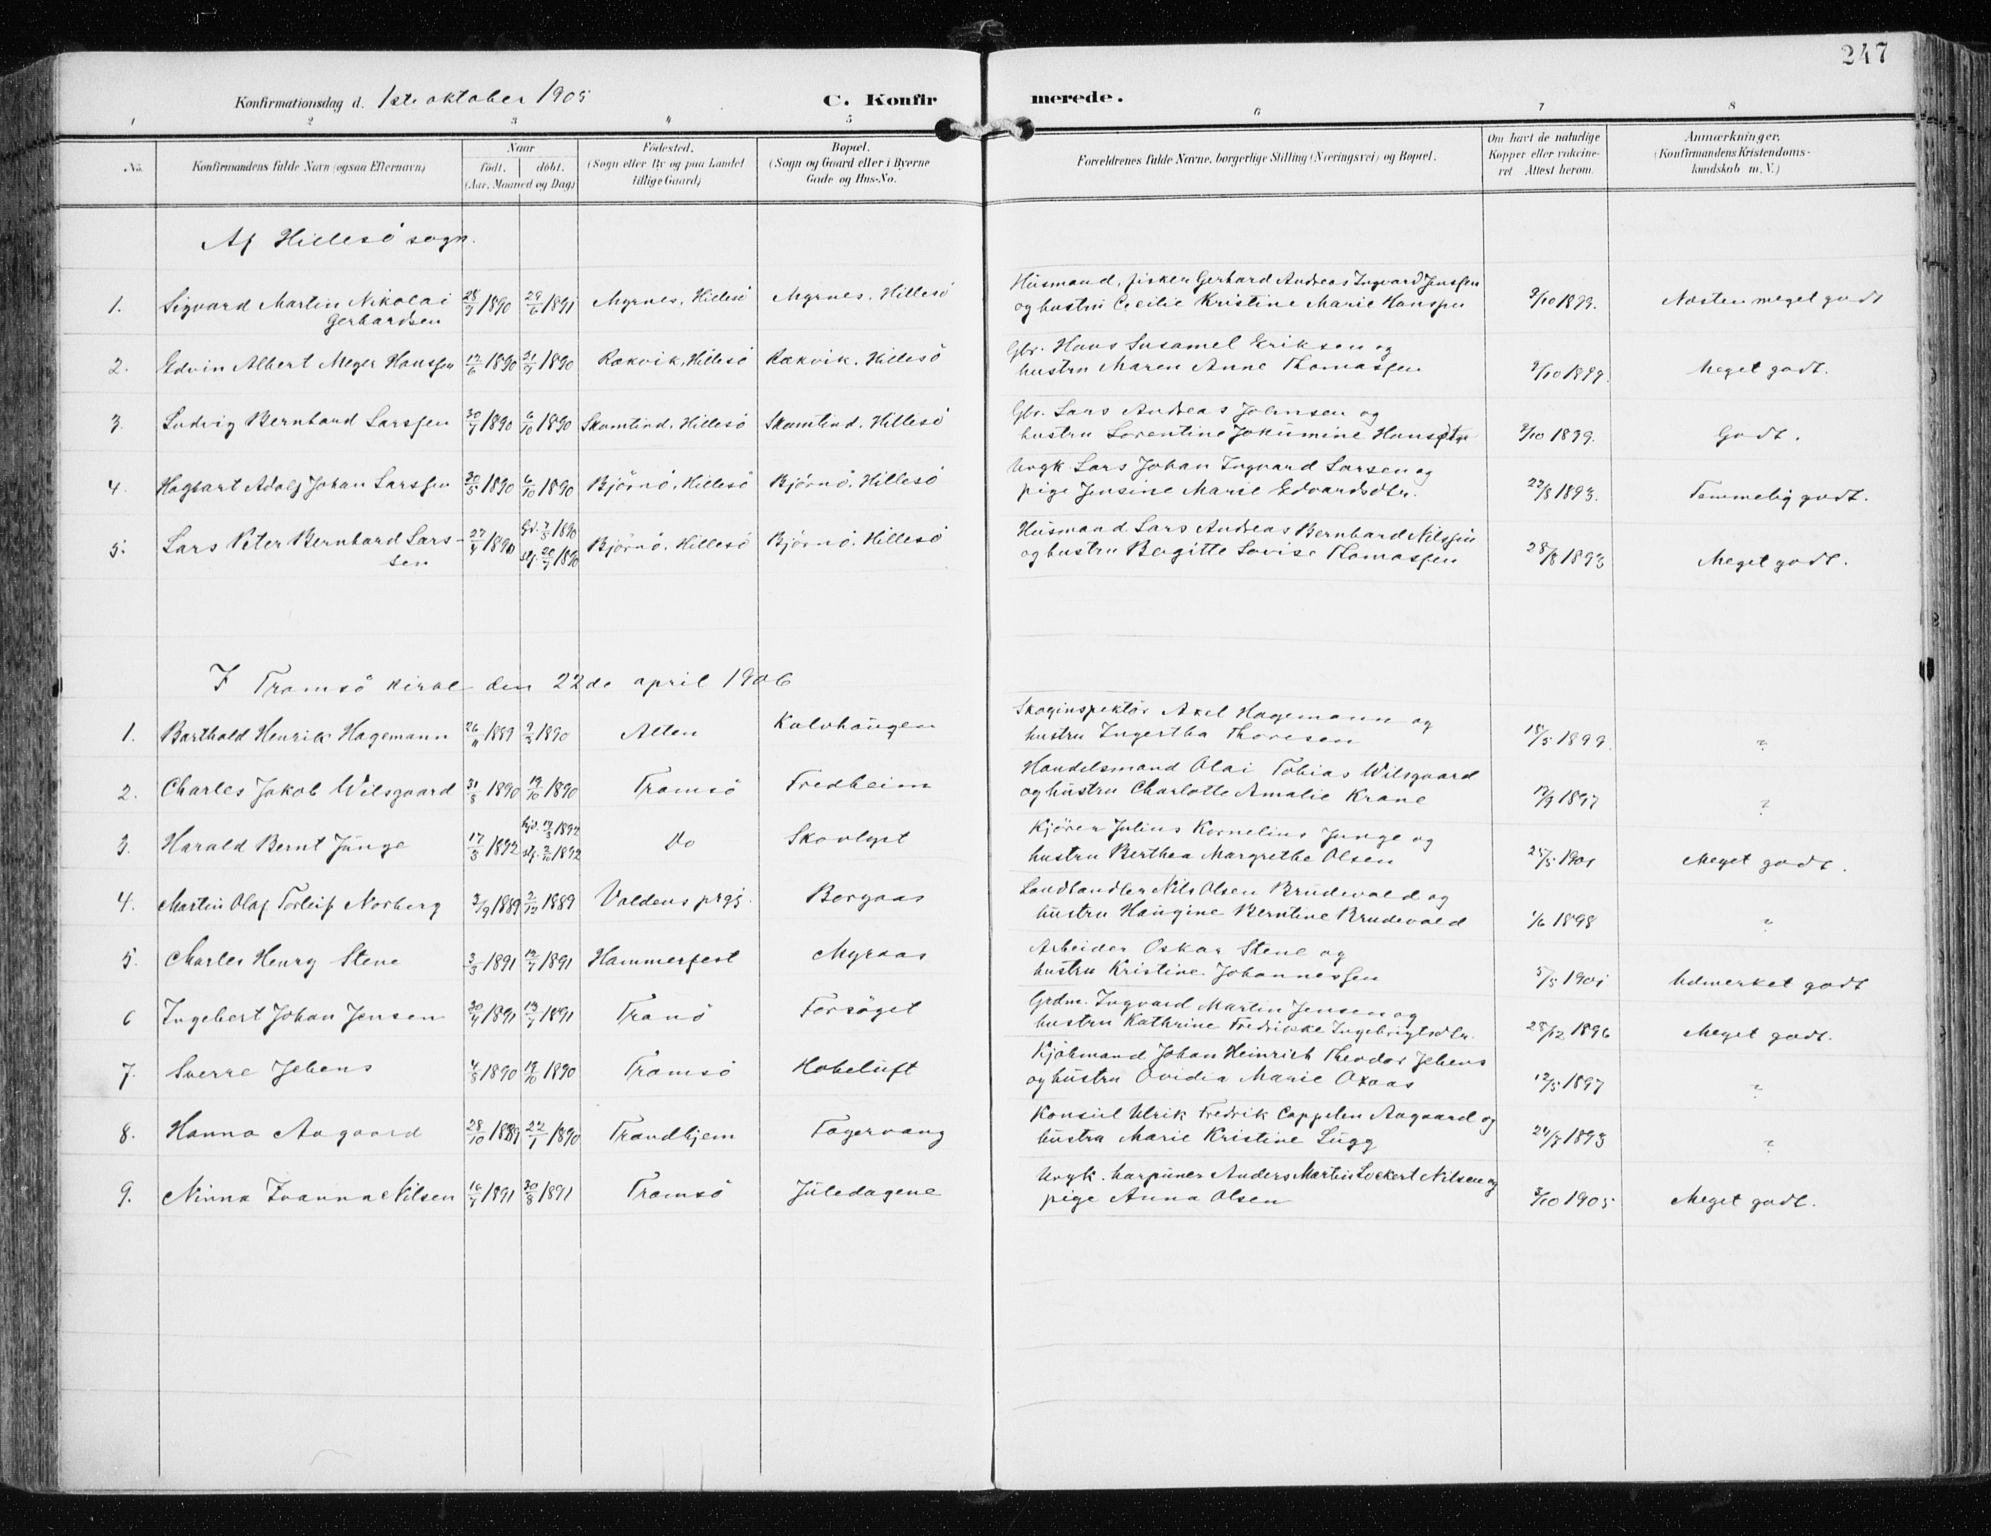 247
Konfirmationsdag d. 1ste oktober 1905 C. Konfirmerede.
1 2 3 4 5 6 7 8
No. Konfirmandens fulde Navn (ogsaa Efternavn) Naar födt. döbt. (Aar, Maaned og Dag) Födested. (Sogn eller By og paa Landet tillige Gaard) Bopæl. (Sogn og Gaard eller i Byerne Gade og Hus-No. Forældrenes fulde Navne, borgerlige Stilling (Næringsvei) og Bopæl. Om havt de naturlige Kopper eller vakcineret. Attest herom. Anmærkninger. (Konfirmandens Kristendomskundskab m. V.)
Af Hillesö sogn.
1. Sigvard Martin Nikolai Gerhardsen 28/7 1890 29/6 1891 Myrnes, Hillesö Myrnes, Hillesö Husmand, fisker Gerhard Andreas Ingvard Jenssen
og hustru Cecilie Kristine Marie Hanssen 9/10 1899. Næsten meget godt
2. Edvin Albert Meyer Hanssen 17/6 1890 21/7 1890 Rækvik, Hillesö Rækvik, Hillesö Gbr. Hans Susamel Eriksen og
hustru Maren Anne Thomassen 9/10 1899. Meget godt.
3. Ludvig Bernhard Larssen 30/7 1890 6/10 1890 Skamtind, Hillesö Skamtind, Hillesö Gbr. Lars Andreas Johnsen og
hustru Lorentine Jokumine Hansdtr 9/10 1899. Godt.
4. Hagbart Adolf Johan Larssen 30/5 1890 6/10 1890 Björnö, Hillesö Björnö, Hillesö Ungk. Lars Johan Ingvard Larsen og
pige Jensine Marie Edvardsdtr. 29/8 1893. Temmelig godt.
5. Lars Peter Bernhard Larssen 27/4 1890 hjd. 7/5 1890 stf. 20/7 1890 Björnö, Hillesö Björnö, Hillesö Husmand Lars Andreas Bernhard Nilssen
og hustru Bergitte Lovise Thomassen 28/8 1893 Meget godt.
I Tromsö kirke den 22de april 1906
1. Barthold Henrik Hagemann 26/11 1889 9/3 1890 Alten Kalvhaugen Skoginspektör Axel Hagemann og
hustru Ingertha Thoresen 18/5 1899. "
2. Charles Jakob Wilsgaard 31/8 1890 19/10 1890 Tromsö Fredheim Handelsmand Olai Tobias Wilsgaard
og hustru Charlotte Amalie Krane 17/9 1897 "
3. Harald Bernt Junge 17/3 1892 hjd. 19/3 1892 stf. 2/10 1892 Do Skovlyst Kjörer Julius Kornelius Junge og
hustru Berthea Margrethe Olsen 25/5 1901 Meget godt.
4. Martin Olaf Torleif Norberg 3/9 1889 2/12 1889 Valdens prgj. Borgaas Landhandler Nils Olsen Brudevold og
hustru Haugine Berntine Brudevold 1/6 1898 "
5. Charles Henry Stene 3/3 1891 12/7 1891 Hammerfest Myraas Arbeider Oskar Stene og
hustru Kristine Johannessen 5/5 1901 Udmerket godt
6 Ingebert Johan Jensen 30/4 1891 19/7 1891 Tranö Forsöget Grdm. Ingvard Martin Jensen og
hustru Kathrine Fredrikke Ingebrigtsdtr. 28/12 1896 Meget godt.
7. Sverre Jebens 4/8 1890 19/10 1890 Tromsö Hobeluft Kjöbmand Johan Heinrich Theodor Jebens
og hustru Ovidia Marie Oxaas 12/5 1897 "
8. Hanna Aagaard 28/10 1889 22/1 1890 Trondhjem Fagervang Konsul Ulrik Fredrik Cappelen Aagaard og
hustru Marie Kristine Lugg 24/7 1893 "
9. Ninna Ivanna Nilsen 16/7 1891 30/8 1891 Tromsö Juledagene Ungk. harpuner Anders Martin Lockert Nilsen og
pige Anna Olsen 3/10 1905 Meget godt.